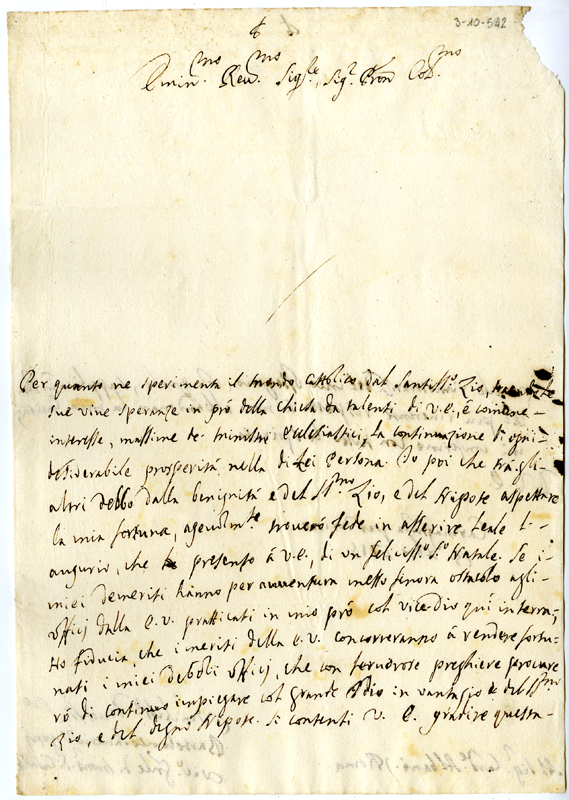 3-10-542
Emin.mo Rev.mo Sig.re, Sig.r Pron Col.mo
Per quanto ne sperimenta il mondo Cattolico, dal Santiss.o Zio,
sue vive speranze in prò della chiesa da talenti di V.E., è comune
interesse, massime de ministri Ecclesiastici, la continuazione di ogni
desiderabile prosperità nella di Lei Persona. Io poi che trà gli
altri debbo dalla benignità e del SS.mo Zio, e del Nepote aspettare
la mia fortuna, agevolm.te troverò fede in asserire leale l'
augurio, che presento à V.E., di un feliciss.o S.o Natale. Se i
miei demeriti hànno per avventura messo finora ostacolo agli
officj dalla E.V. pratticati in mio prò col vice-dio quì in terra,
Hò fiducia, che i meriti della E.V. concorreranno à rendere fortu-
nati i miei deboli officj, che con fervorose preghiere procure
rò di continuo impiegare col grande Iddio in vantagio e del SS.mo
Zio, e del degno Nepote. Si contenti V.E. gradire questa